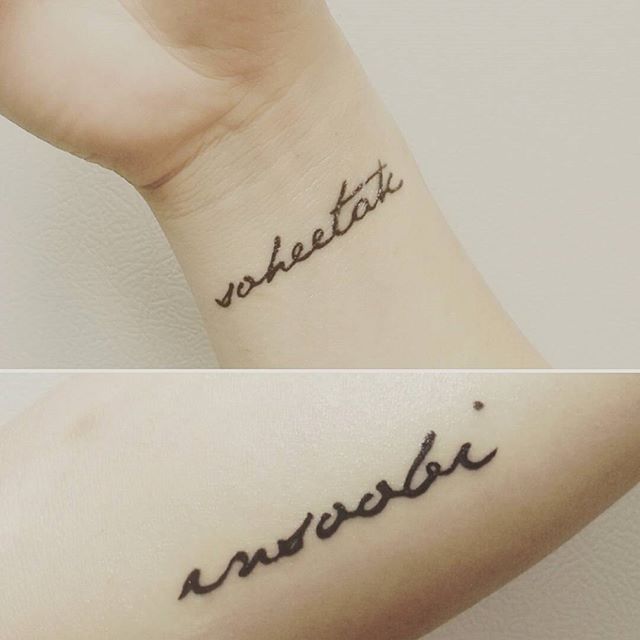 soheetak
insoobi